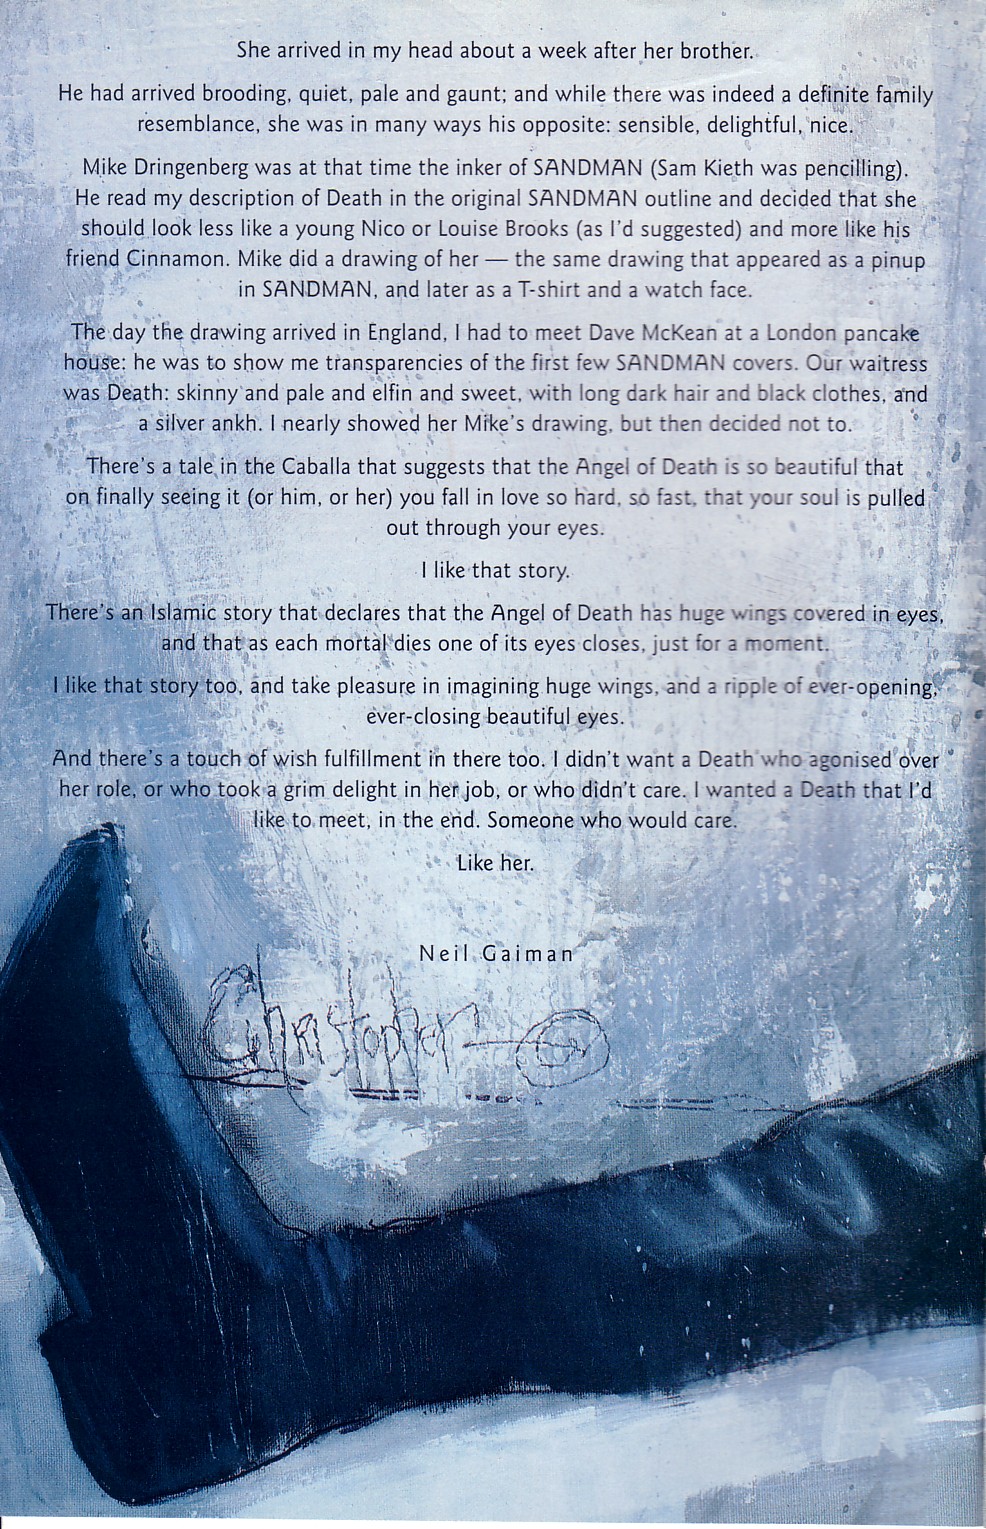 She arrived in my head about a week after her brother.
He had arrived brooding, quiet, pale and gaunt; and while there was indeed a definite family
resemblance, she was in many ways his opposite: sensible, delightful, nice.
Mike Dringenberg was at that time the inker of SANDMAN (Sam Kieth was pencilling).
He read my description of Death in the original SANDMAN outline and decided that she
should look less like a young Nico or Louise Brooks (as I'd suggested) and more like his
friend Cinnamon. Mike did a drawing of her — the same drawing that appeared as a pinup
in SANDMAN, and later as a T-shirt and a watch face.
The day the drawing arrived in England, I had to meet Dave McKean at a London pancake
house: he was to show me transparencies of the first few SANDMAN covers. Our waitress
was Death: skinny and pale and elfin and sweet, with long dark hair and black clothes, and
a silver ankh. I nearly showed her Mike's drawing, but then decided not to.
There's a tale in the Caballa that suggests that the Angel of Death is so beautiful that
on finally seeing it (or him, or her) you fall in love so hard, so fast, that your soul is pulled
out through your eyes.
I like that story.
There's an Islamic story that declares that the Angel of Death has huge wings covered in eyes,
and that as each mortal dies one of its eyes closes, just for a moment.
I like that story too, and take pleasure in imagining huge wings, and a ripple of ever-opening,
ever-closing beautiful eyes.
And there's a touch of wish fulfillment in there too. I didn't want a Death who agonised over
her role, or who took a grim delight in her job, or who didn't care. I wanted a Death that I'd
like to meet, in the end. Someone who would care.
Like her.
Neil Gaiman
Christopher